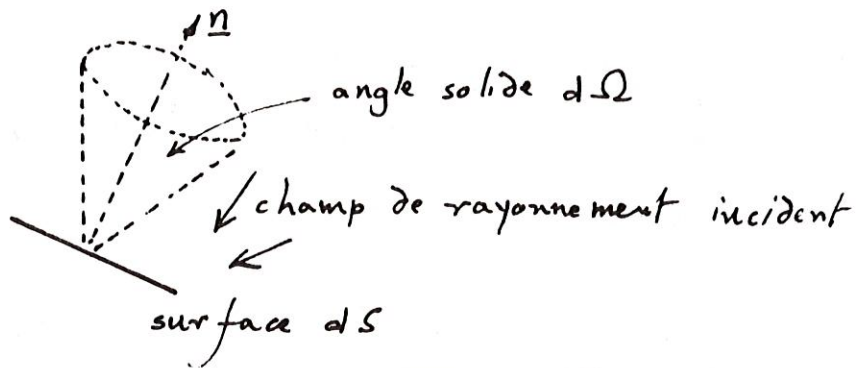 n
angle solide dΩ
champ de rayonnement incident
surface dS